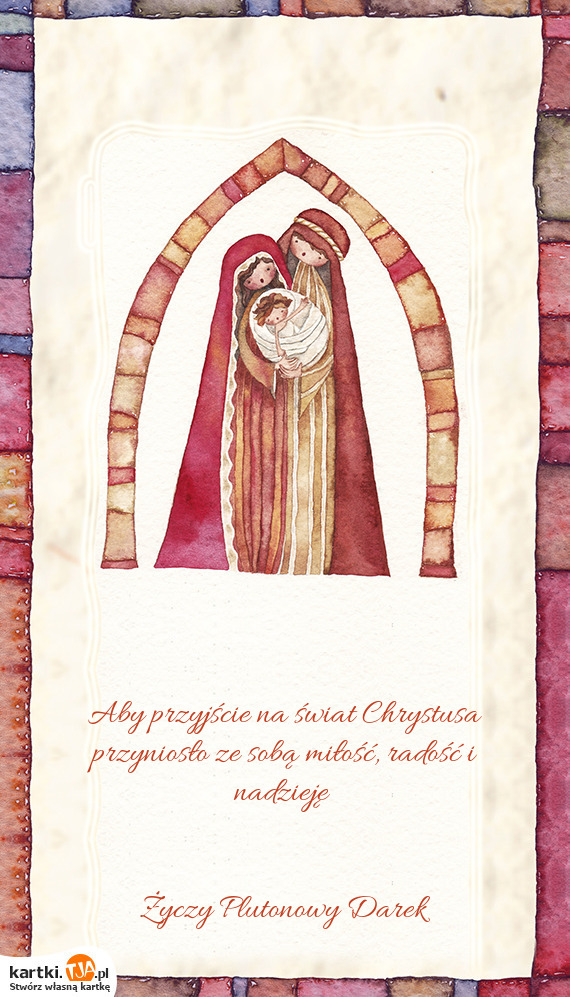 Aby przyjście na świat Chrystusa
przyniosło ze sobą miłość, radość i
nadzieję
Życzy Plutonowy Darek
kartki.TJA.pl
Stwórz własną kartkę